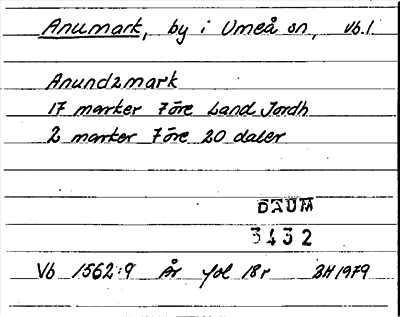 Anumark, by i Umeå sn, Vb.l.
Anundzmark
17 marker 7 öre Land Jordh
2 marker 7 öre 20 daler
DAUM
3432
Vb 1562:9 År fol 18 r 2H 1979